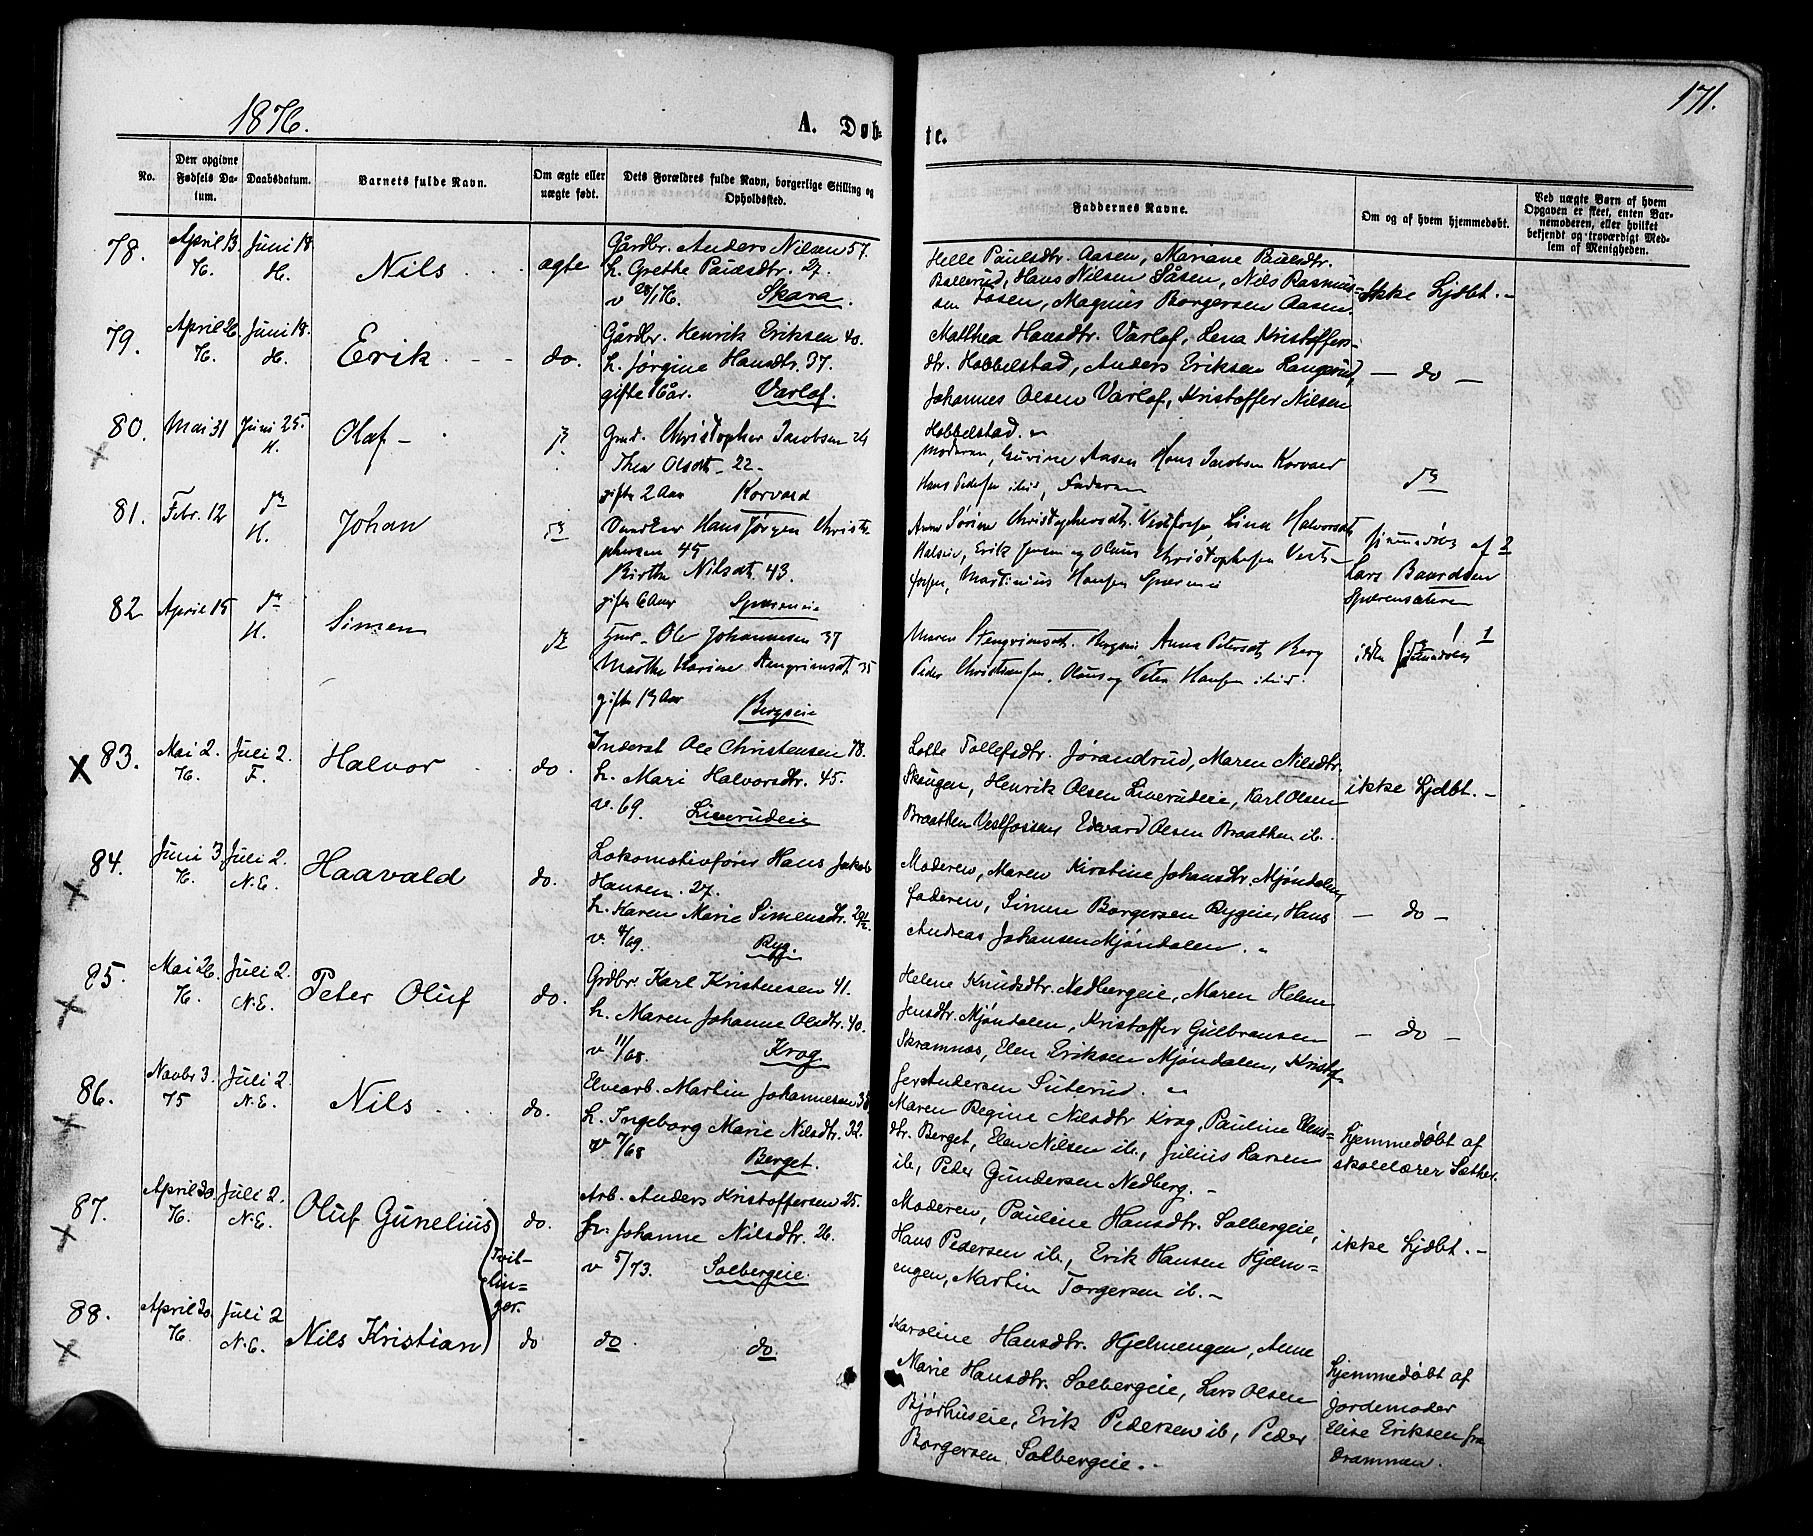 1876.
A. Døb-
te.
171.
No.
Den opgivne Fødsels Da-
tum.
Daabsdatum.
Barnets fulde Navn.
Om ægte eller
uægte født.
Dets Forældres fulde Navn, borgerlige Stilling og
Opholdssted.
Faddernes Navne.
Om og af hvem hjemmedøbt.
Ved uægte Børn af hvem
Opgaven er skeet, enten Bar-
nemoderen, eller hvilket
bekjendt og troværdigt Med-
lem af Menigheden.
78.
April 13
76.
Juni 18.
H.
Nils
ægte
Gårdbr. Anders Nilsen 57.
h. Grethe Paulsdtr. 27.
v 28/1 76. Skara.
Helle Paulsdtr. Aasen, Mariane Paulsdtr.
Bollerud, Hans Nilsen Låsen, Nils Rasmus-
sen Fosen, Magnus Borgersen Aasen.
Ikke hjdbt. -
79.
April 26
76.
Juni 18.
H.
Erik
do.
Gårdbr. Henrik Eriksen 40.
h. Jørgine Hansdtr. 37.
gifte 16 år. Varlof.
Matthea Hansdtr. Varlof, Lena Kristoffers-
dtr. Hobbelstad, Anders Eriksen Langerud,
Johannes Olsen Varlof, Kristoffer Nilsen
Hobbelstad.
- do -
80.
Mai 31
Juni 25.
H.
Olaf -
Gmd. Christopher Jacobsen 24
Thea Olsdt. 22 -
gifte 2 Aar Korvard
Moderen, Guvine Aasen Hans Jacobsen Korvard
Hans Pedersen ibid, Faderen
81.
Febr. 12
H.
Johan
Hans Jørgen Christo
phersen 45
Birthe Nilsdt. 43.
gifte 6 Aar Spæreneie
Anne Sørine Christophersdt. Vestfossen, Lina Halvorsdt
Halseie, Erik Jensen og Olaus Christophersen Vest-
fossen, Martinius Hansen Spæreneie
hjemmedøbt af
Lars Baardsen
Spærensæteren
82
April 15
H.
Simen
Ole Johannesen 37
Marthe Karine Stengrimsdt. 35
gifte 13 Aar
Bergseie
Maren Stengrimsdt. Bergseie Anna Petersdt Berg
Peder Christensen, Olaus og Peter Hansen ibid.
ikke hjemmedøbt
83.
Mai 2.
76.
Juli 2.
F.
Halvor
do.
Inderst Ole Christensen 48.
h. Mari Halvorsdtr. 45.
v. 69. Liverudeie
Lotte Tollefsdtr. Jørandrud, Maren Nilsdtr.
Skaugen, Henrik Olsen Liverudeie, Karl Olsen
Braathen Vestfossen, Edvard Olsen Braathen ib.
ikke hjdbt. -
84.
Juni 3
76.
Juli 2.
N.E.
Haavald
do.
Lokomotivfører Hans Jakob
Hansen. 27.
h. Karen Marie Simensdtr. 29½.
v. 4/69. Ryg.
Moderen, Maren Kirstine Johansdtr. Mjøndalen,
faderen, Simen Borgersen Rygeie, Hans
Andreas Johansen Mjøndalen.
- do -
85.
Mai 26.
76.
Juli 2.
N.E.
Peter Oluf
do.
Grdbr. Karl Kristensen 41.
h. Maren Johanne Olsdtr. 40.
v 11/68. Krog.
Helene Knudsdtr. Nedbergeie, Maren Helene
Jensdtr. Mjøndalen, Kristoffer Gulbransen
Skramnæs, Elen Eriksen Mjøndalen, Kristof-
fer Andersen Suterud.
- do -
86.
Novbr 3.
75
Juli 2.
N.E.
Nils
do.
Elvearb. Martin Johannesen 38
h. Ingeborg Marie Nilsdtr. 32.
v. 7/68. Berget.
Maren Regine Nilsdtr Krog, Pauline Elens-
dtr. Berget, Elen Nilsen ib., Julius Larsen
ib., Peder Gundersen Nedberg. -
hjemmedøbt af
skolelærer Sæther.
87.
April 20.
76.
Juli 2.
N.E.
Oluf Gunelius
Tvil-
lin-
ger.
do.
Arb. Anders Kristoffersen 25.
h. Johanne Nilsdtr. 26.
v 5/73. Solbergeie.
Moderen, Pauline Hansdtr. Solbergeie,
Hans Pedersen ib., Erik Hansen Hjelm-
engen, Martin Torgersen ib. -
ikke hjdbt. -
88.
April 20
76.
Juli 2
N.E.
Nils Kristian
do
do. do.
Karoline Hansdtr. Hjelmengen, Anne
Marie Hansdtr. Solbergeie, Lars Olsen
Bjørhuseie, Erik Pedersen ib, Peder
Borgersen Solbergeie. -
hjemmedøbt af
Jordemoder
Elise Eriksen fra
Drammen.